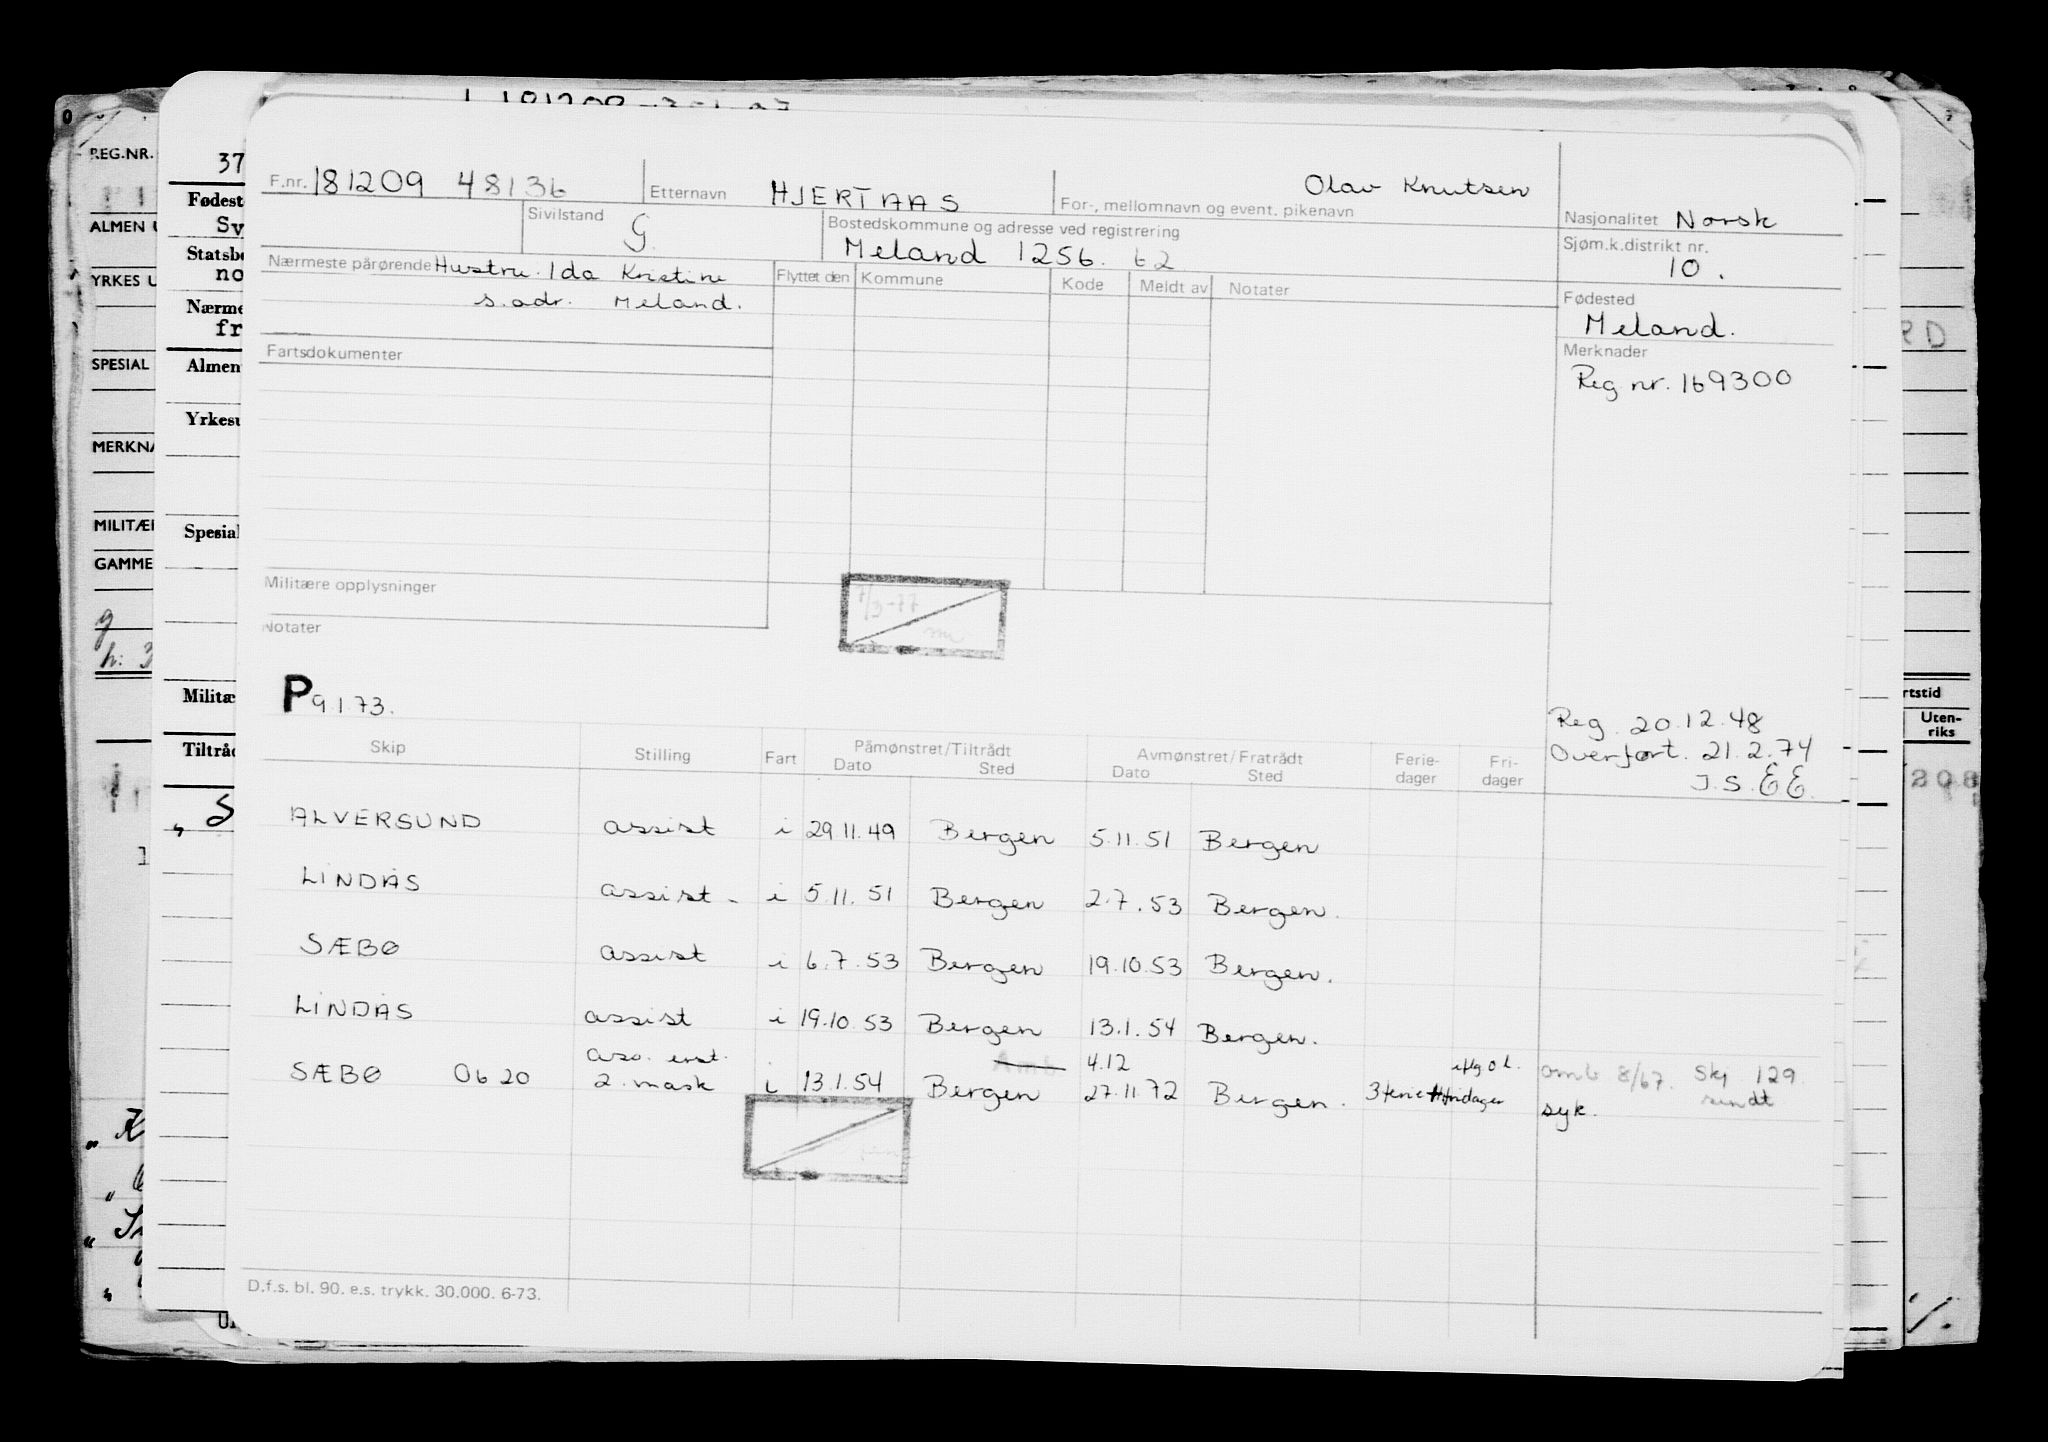 F.nr. 181209 48136 Etternavn HJERTAAS For-, mellomnavn og event. pikenavn Olav Knutsen
Nasjonalitet Norsk
Sivilstand G. Bostedskommune og adresse ved registrering
Meland 1256. 62
Sjøm.k.distrikt nr.
10.
Nærmeste pårørende Hustru. Ida Kristine
s. adr. Meland.
Flyttet den Kommune Kode Meldt av Notater
Fødested
Meland.
Fartsdokumenter
Merknader
Reg nr. 169300
Militære opplysninger
7/3-77
Notater
P 9.1.73.
Reg. 20.12.48
Overført. 21.2.74
J.S. EE.
Skip Stilling Fart Påmønstret/Tiltrådt Dato Sted Avmønstret/Fratrådt Dato Sted Ferie-dager Fri-dager
ALVERSUND assist i 29.11.49 Bergen 5.11.51 Bergen
LINDÅS assist - i 5.11.51 Bergen 2.7.53 Bergen.
SÆBØ assist i 6.7.53 Bergen 19.10.53 Bergen.
LINDÅS assist i 19.10.53 Bergen 13.1.54 Bergen.
ass. erst. 4.12
SÆBØ 0620 2. mask i 13.1.54 Bergen 27.11.72 Bergen. 3 ferie fridager omb 8/67. Skj 129.
syk. sendt
D.f.s. bl. 90. e.s. trykk. 30.000. 6-73.
REG.NR.
ALMEN
YRKES
SPESIAL
MERKNA
MILITÆ
GAMME
37
Fødest
Sv
Statsb
no
Nærme
fr
Almen
Yrkesu
Spesial
Militæ
Tiltråd
RD
rtstid
Uten-
riks
208